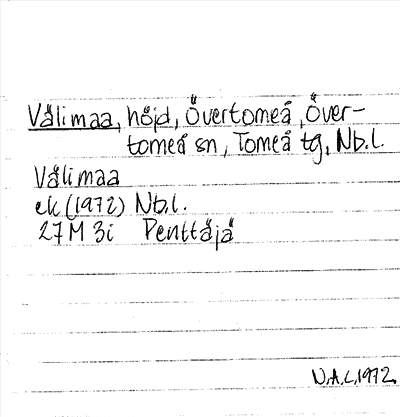 Välimaa, höjd, Övertorneå, Över-
torneå sn, Torneå tg, Nb.l.
Välimaa
ek (1972) Nb.l.
27M 3i Penttäjä
N.A.L.1972